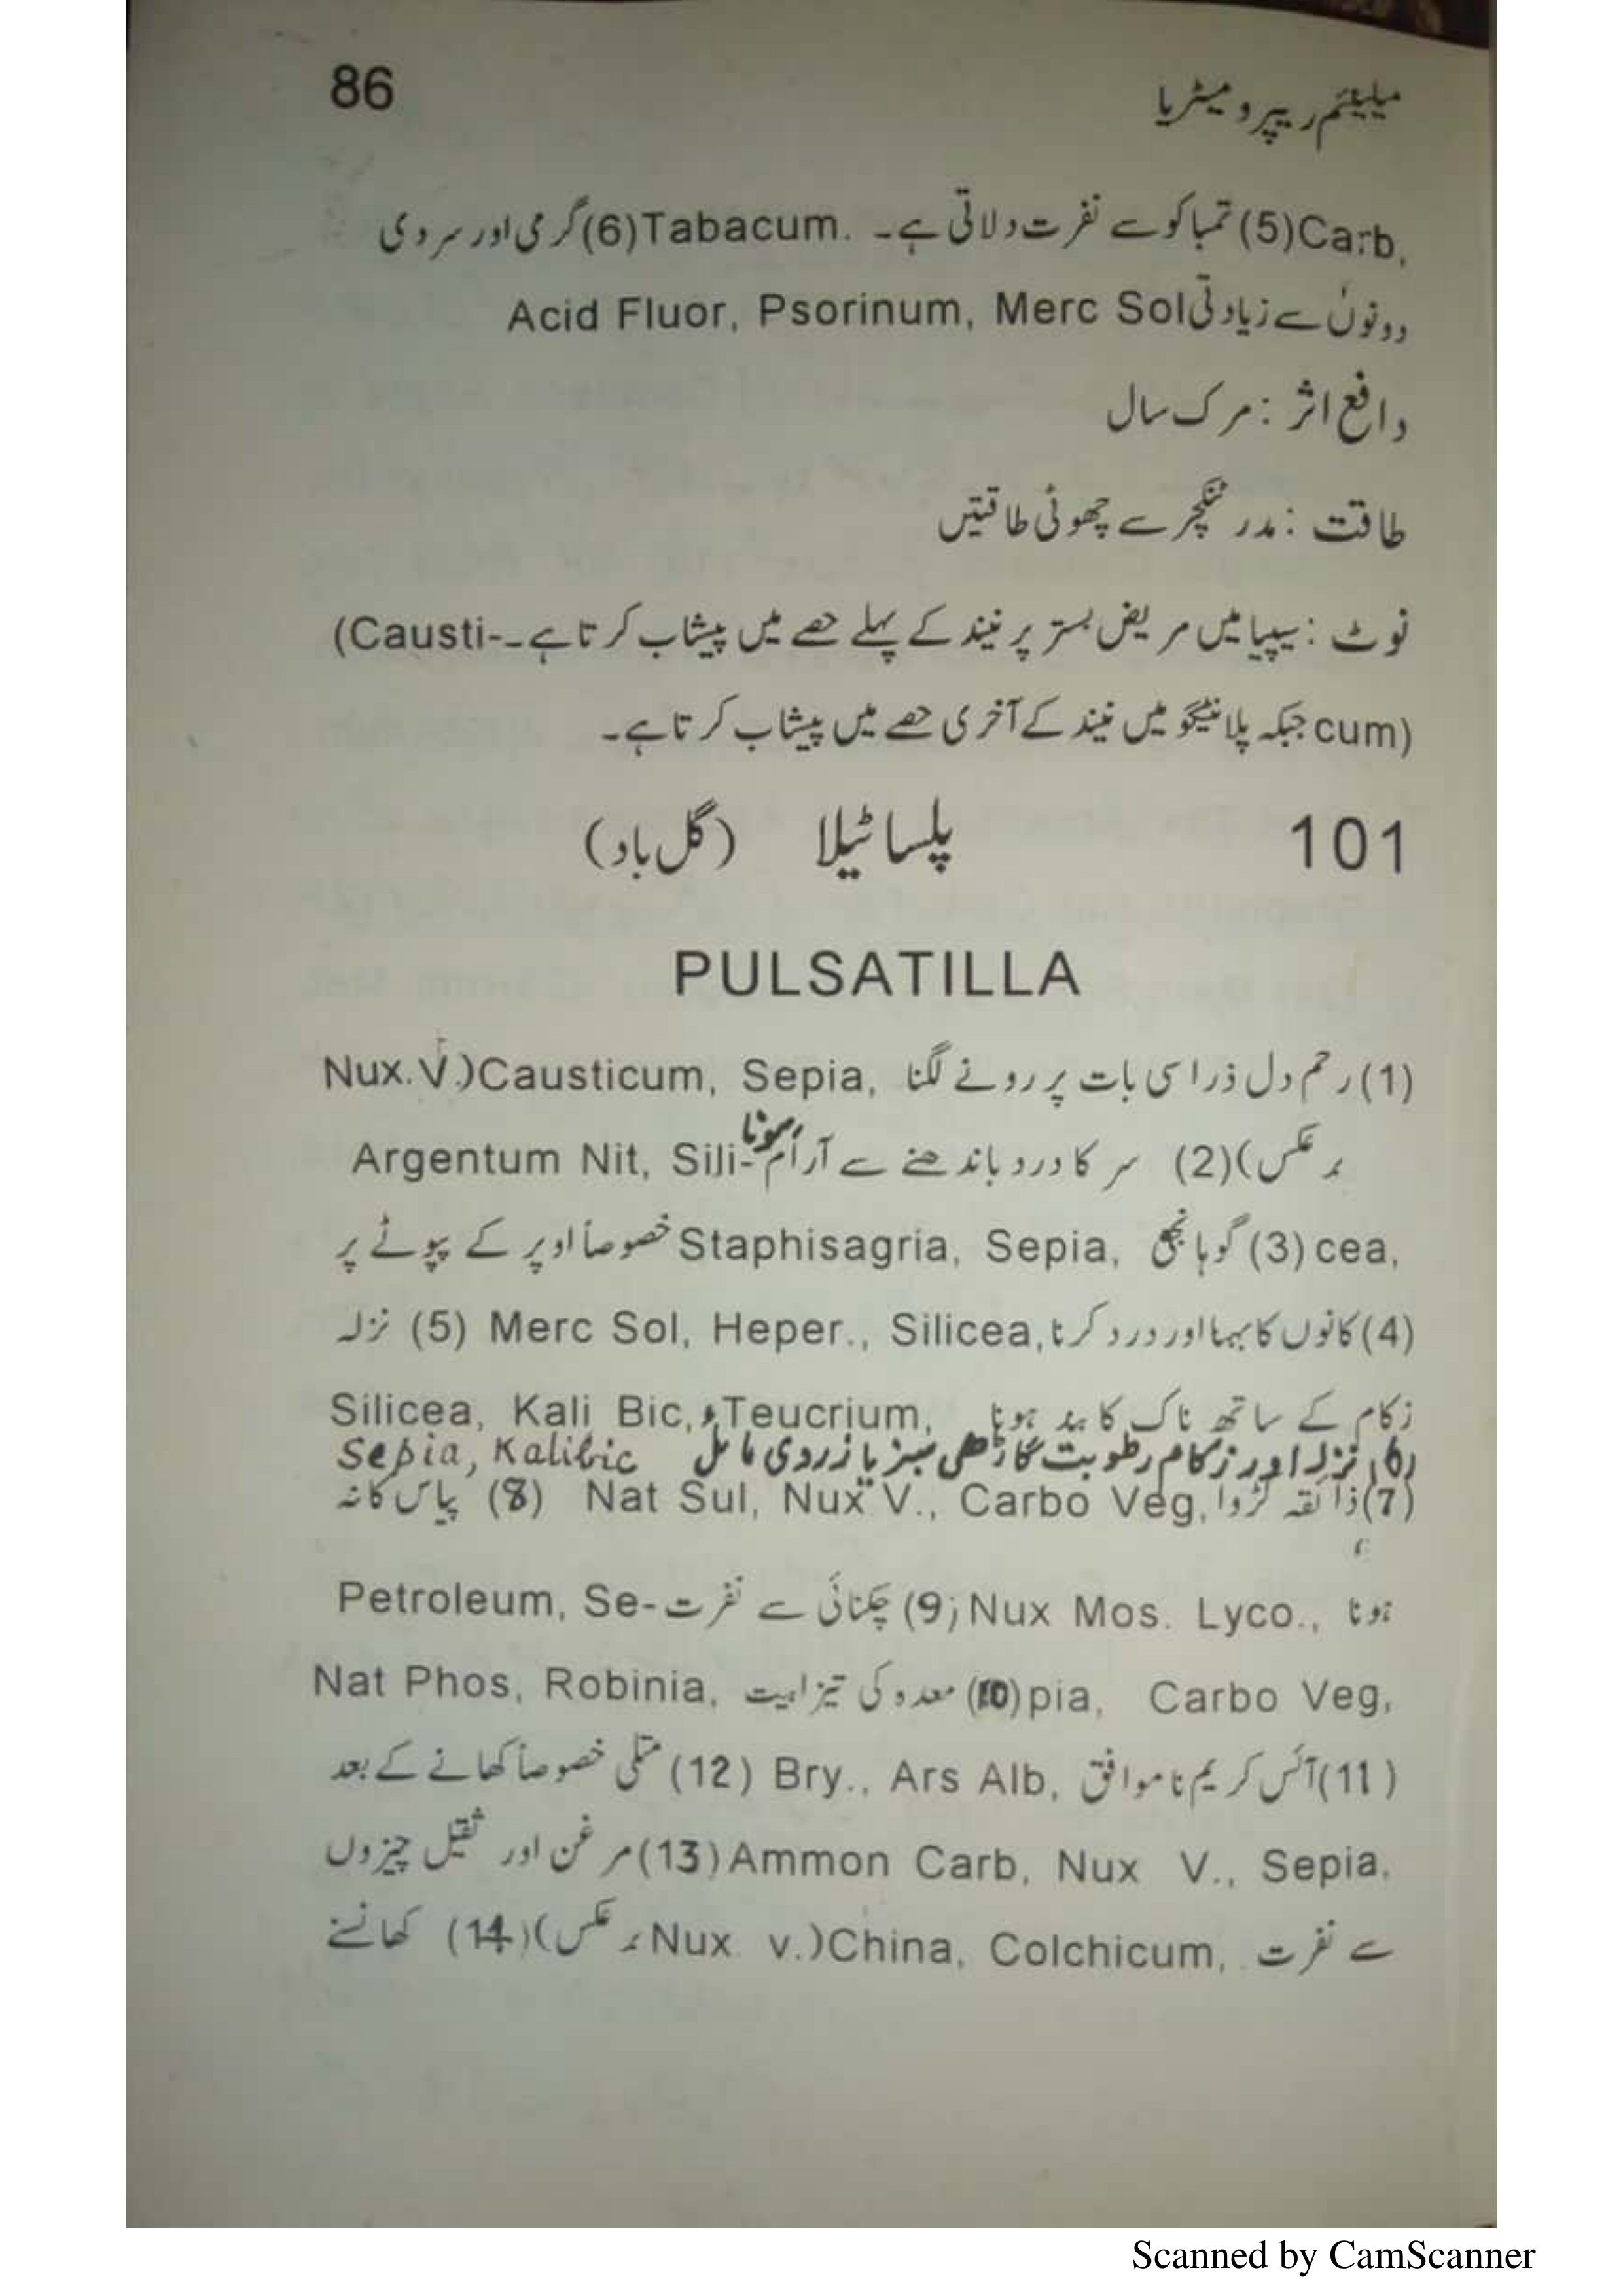 میلینئم ریپر و میٹریا 86
Carb, (5) تمباکو سے نفرت دلاتی ہے۔ Tabacum. (6) گرمی اور سردی
دونوں سے زیادتی Acid Fluor, Psorinum, Merc Sol
دافع اثر : مرک سال
طاقت : مدر ٹنکچر سے چھوٹی طاقتیں
نوٹ : سیپیا میں مریض بستر پر نیند کے پہلے حصے میں پیشاب کرتا ہے۔ (Causti-
cum) جبکہ پلانٹیگو میں نیند کے آخری حصے میں پیشاب کرتا ہے۔
101 پلساٹیلا (گل باد)
PULSATILLA
(1) رحم دل ذرا سی بات پر رونے لگنا Causticum, Sepia, (Nux. V.
برعکس) (2) سر کا درد باندھنے سے آرام ہونا Argentum Nit, Sili-
cea, (3) گوہانجنی Staphisagria, Sepia, خصوصاً اوپر کے پپوٹے پر
(4) کانوں کا بہنا اور درد کرنا Merc Sol, Heper., Silicea, (5) نزلہ
زکام کے ساتھ ناک کا بند ہونا Silicea, Kali Bic, Teucrium,
(6) نزلہ اور زکام رطوبت گاڑھی سبز یا زردی مائل Sepia, Kalibic
(7) ذائقہ کڑوا Nat Sul, Nux V., Carbo Veg, (8) پیاس کا نہ
ہونا Nux Mos. Lyco., (9) چکنائی سے نفرت Petroleum, Se-
pia, Carbo Veg, (10) معدہ کی تیزابیت Nat Phos, Robinia,
(11) آئس کریم ناموافق Bry., Ars Alb, (12) متلی خصوصاً کھانے کے بعد
Ammon Carb, Nux V., Sepia, (13) مرغن اور ثقیل چیزوں
سے نفرت China, Colchicum, (Nux v. برعکس) (14) کھانسنے
Scanned by CamScanner